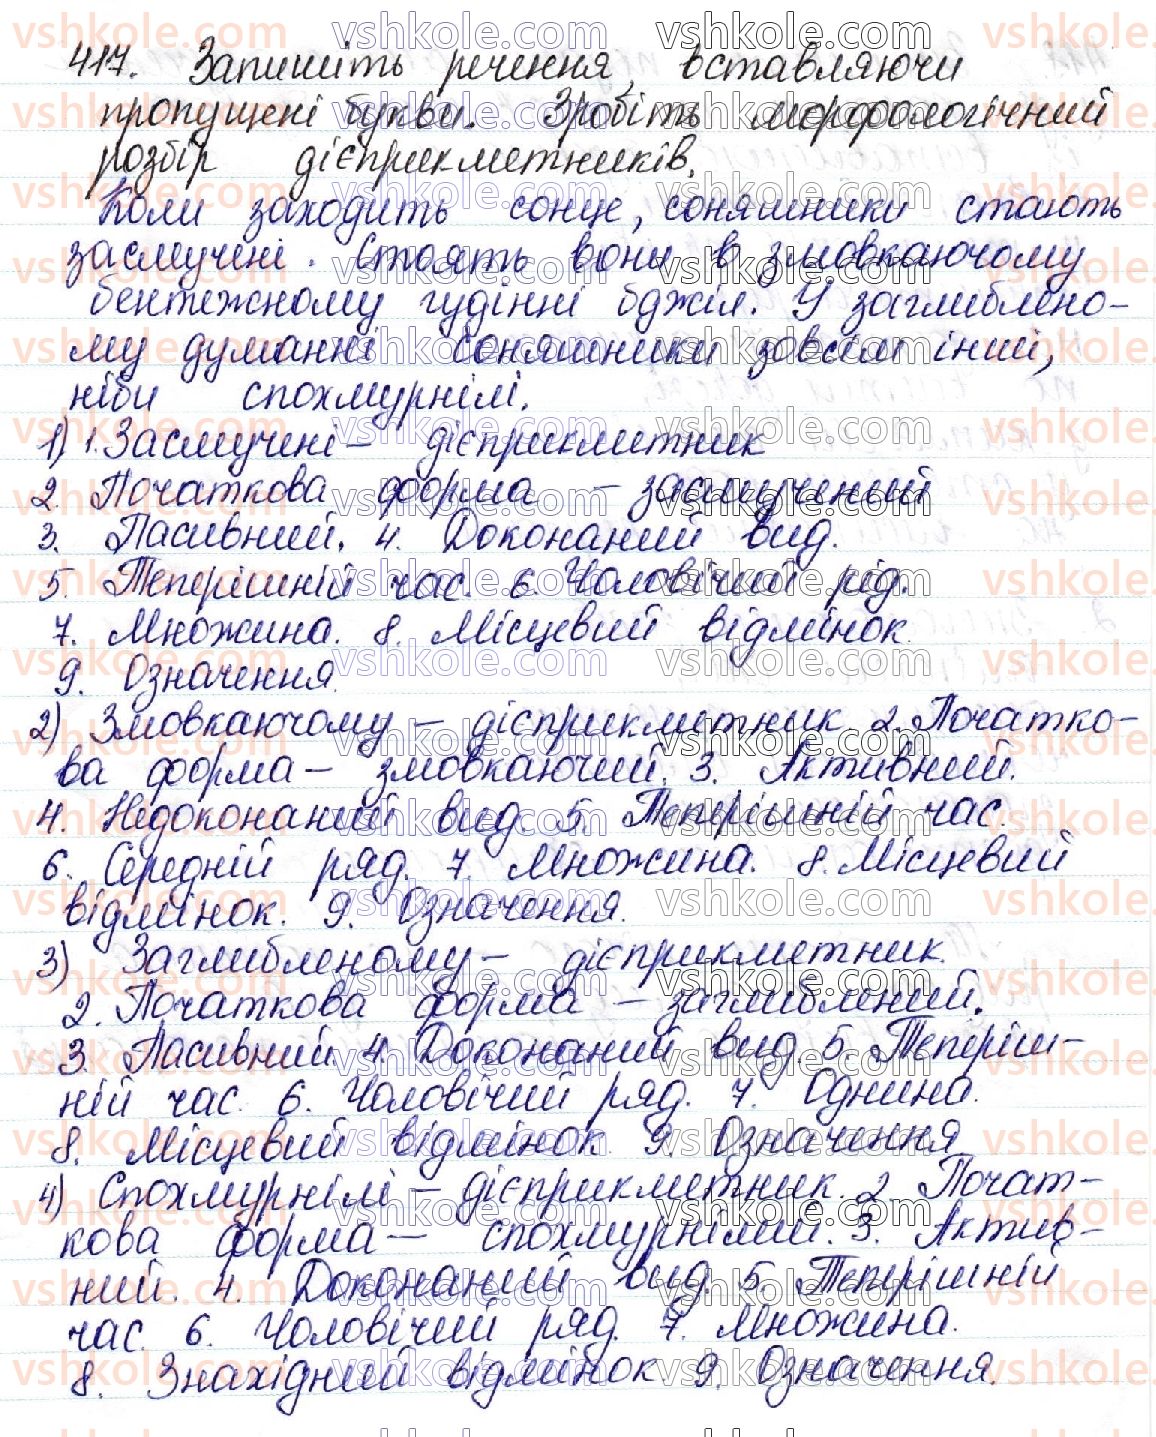 417. Запишіть речення, вставляючи
пропущені букви. Зробіть морфологічний
розбір дієприкметників.
Коли заходить сонце, соняшники стають
засмучені. Стоять вони в змовкаючому
бентежному гудінні бджіл. У заглиблено-
му думанні соняшники зовсім інші,
ніби спохмурнілі.
1) 1. Засмучені – дієприкметник
2. Початкова форма – засмучений
3. Пасивний. 4. Доконаний вид.
5. Теперішній час. 6. Чоловічий рід.
7. Множина. 8. Місцевий відмінок.
9. Означення.
2) Змовкаючому – дієприкметник. 2. Початко-
ва форма – змовкаючий. 3. Активний.
4. Недоконаний вид. 5. Теперішній час.
6. Середній ряд. 7. Множина. 8. Місцевий
відмінок. 9. Означення.
3) Заглибленому – дієприкметник.
2. Початкова форма – заглиблений.
3. Пасивний. 4. Доконаний вид. 5. Теперіш-
ній час. 6. Чоловічий ряд. 7. Однина.
8. Місцевий відмінок 9. Означення
4) Спохмурнілі – дієприкметник. 2. Почат-
кова форма – спохмурнілий. 3. Актив-
ний. 4. Доконаний вид. 5. Теперішній
час. 6. Чоловічий ряд. 7. Множина.
8. Знахідний відмінок 9. Означення.